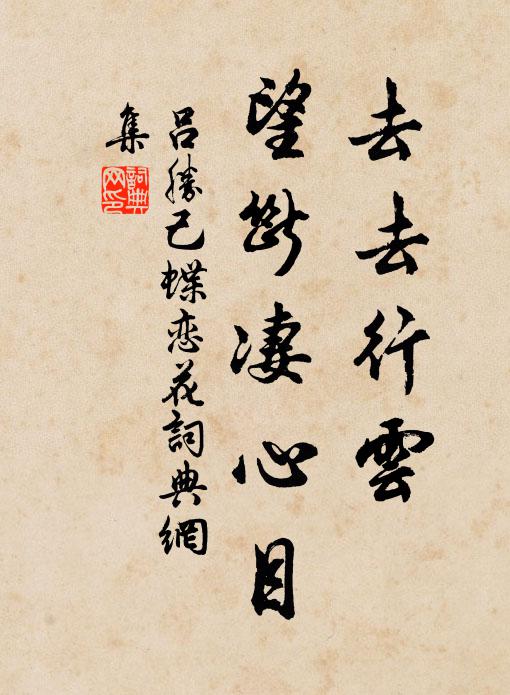 去去行雲
望斷淒心目
呂勝己蝶恋花詞典網
集
詞典
网印